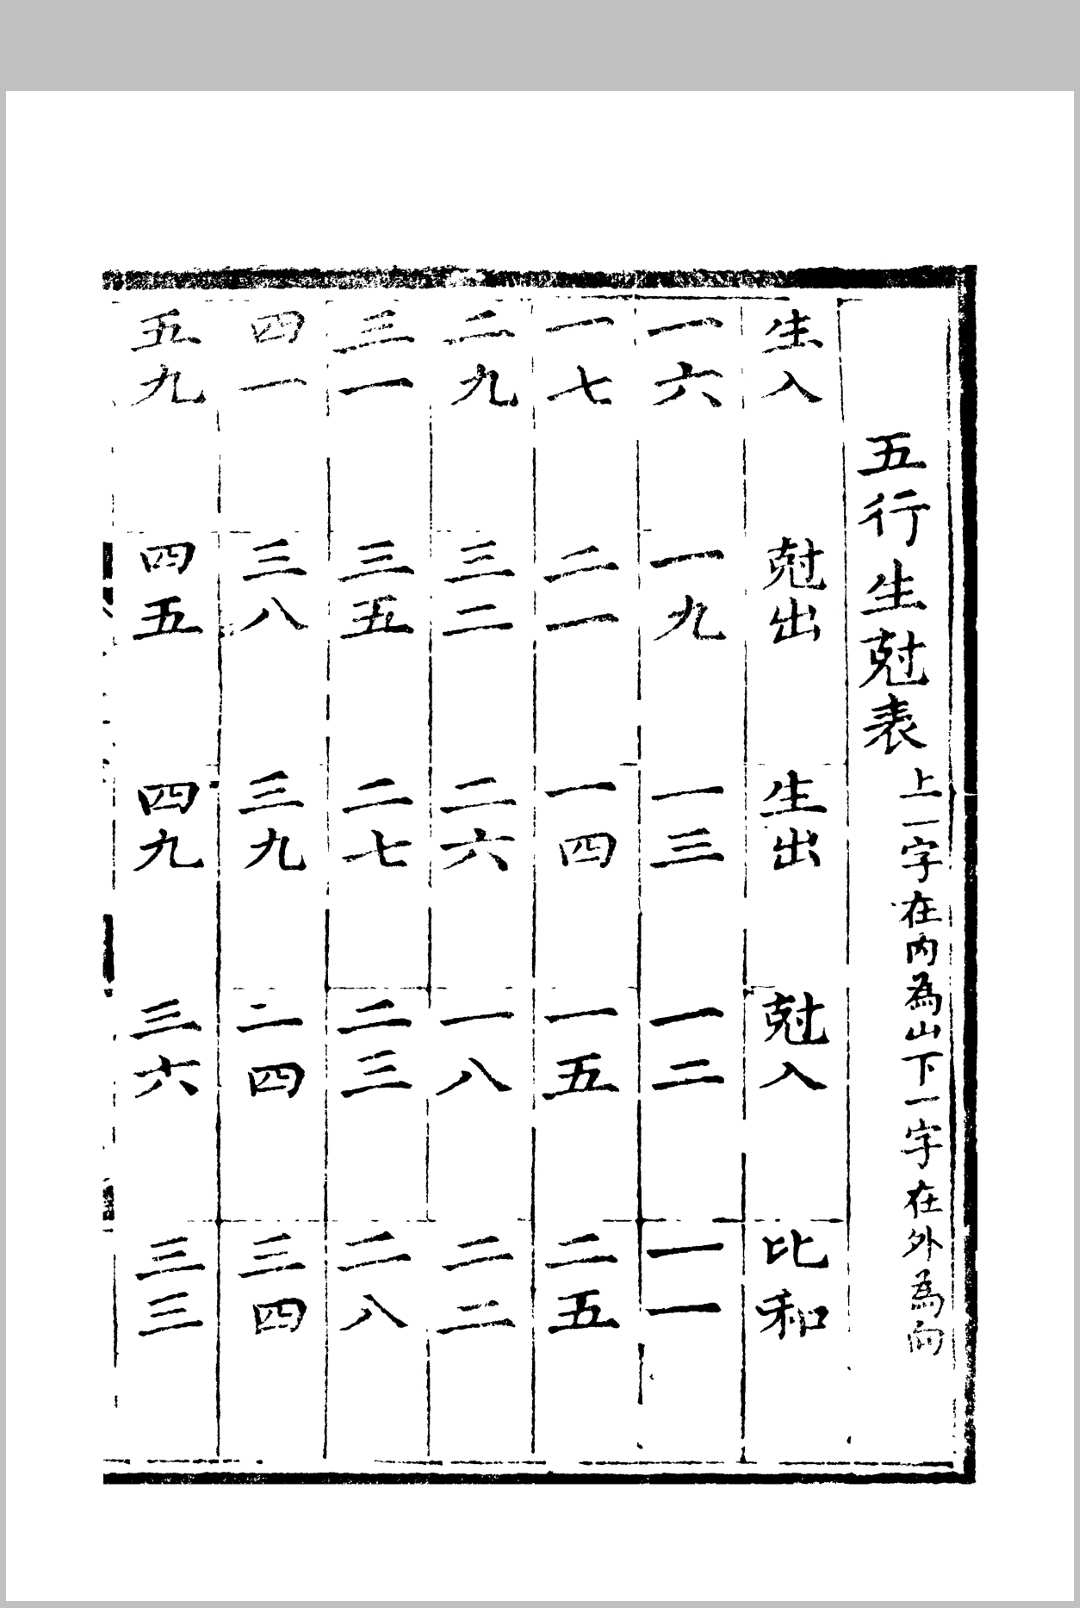 五行生尅表上一字在內為山下一字在外為向
生入 尅出 生出 尅入 比和
一六 一九 一三 一二 一一
一七 二一 一四 一五 二五
二九 三二 二六 一八 二二
三一 三五 二七 二三 二八
四一 三八 三九 二四 三四
五九 四五 四九 三六 三三